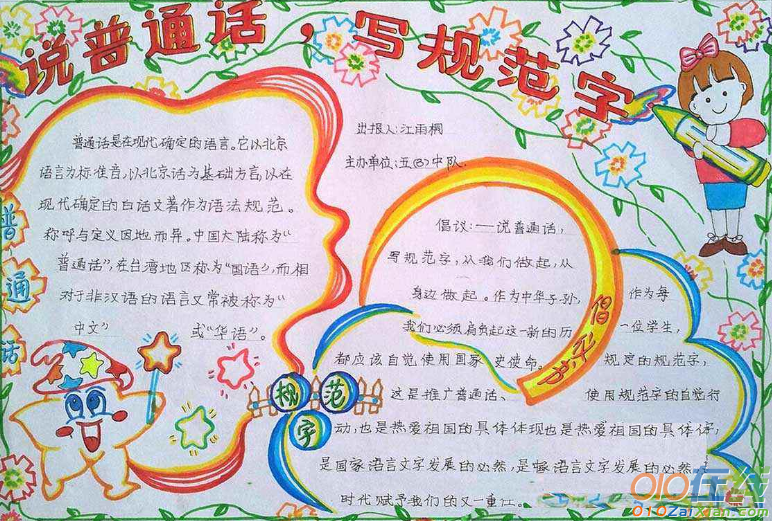 说普通话，写规范字
普通话是在现代确定的语言。它以北京
语言为标准音，以北京话为基础方言，以在
现代确定的白话文著作为语法规范。
称呼与定义因地而异。中国大陆称为“
普通话”，在台湾地区称为“国语”，而相
对于非汉语的语言又常被称为“
中文” 或“华语”。
普通话
出报人：江雨桐
主办单位：五(3)中队
倡议：——说普通话，
写规范字，从我们做起，从
身边做起。作为中华子孙， 作为每
我们必须肩负起这一新的历 一位学生，
都应该自觉使用国家 史使命。 规定的规范字，
这是推广普通话、 使用规范字的自觉行
动，也是热爱祖国的具体体现也是热爱祖国的具体体，
是国家语言文字发展的必然，是 语言文字发展的必然，
时代赋予我们的又一重
倡
规范字
010在线
010ZaiXian.com